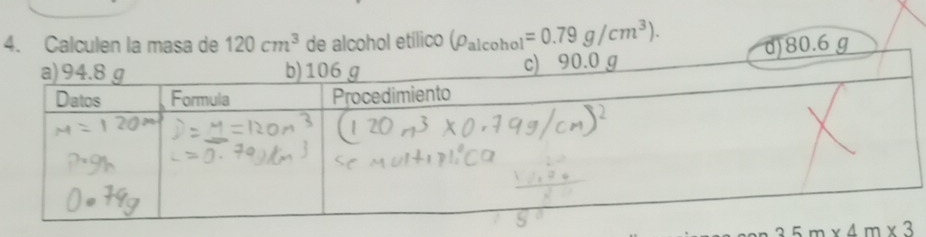 4. Calculen la masa de 120 cm³ de alcohol etílico (ρalcohol = 0.79 g/cm³).
a) 94.8 g b) 106 g c) 90.0 g d) 80.6 g
Datos Formula Procedimiento
M = 120m³ D = M = 120m³ (120 m³ x 0.79g/cm)²
se multiplica
0.79g
3.5 m x 4 m x 3